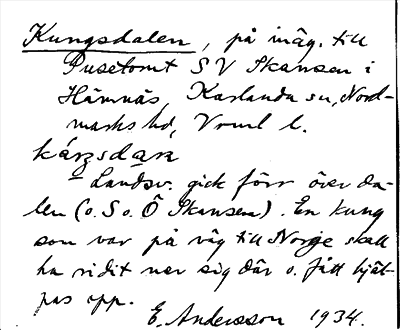 Kungsdalen, på mäg. till
Pusetomt SV Skansen i
Hämnäs, Karlanda sn, Nord-
marks hd, Vrml l.
Landsv. gick förr över da-
len (o. S o. Ö Skansen). En kung
som var på väg till Norge skall
ha ridit ner sig där o. fått hjäl-
pas opp.
E. Andersson 1934.